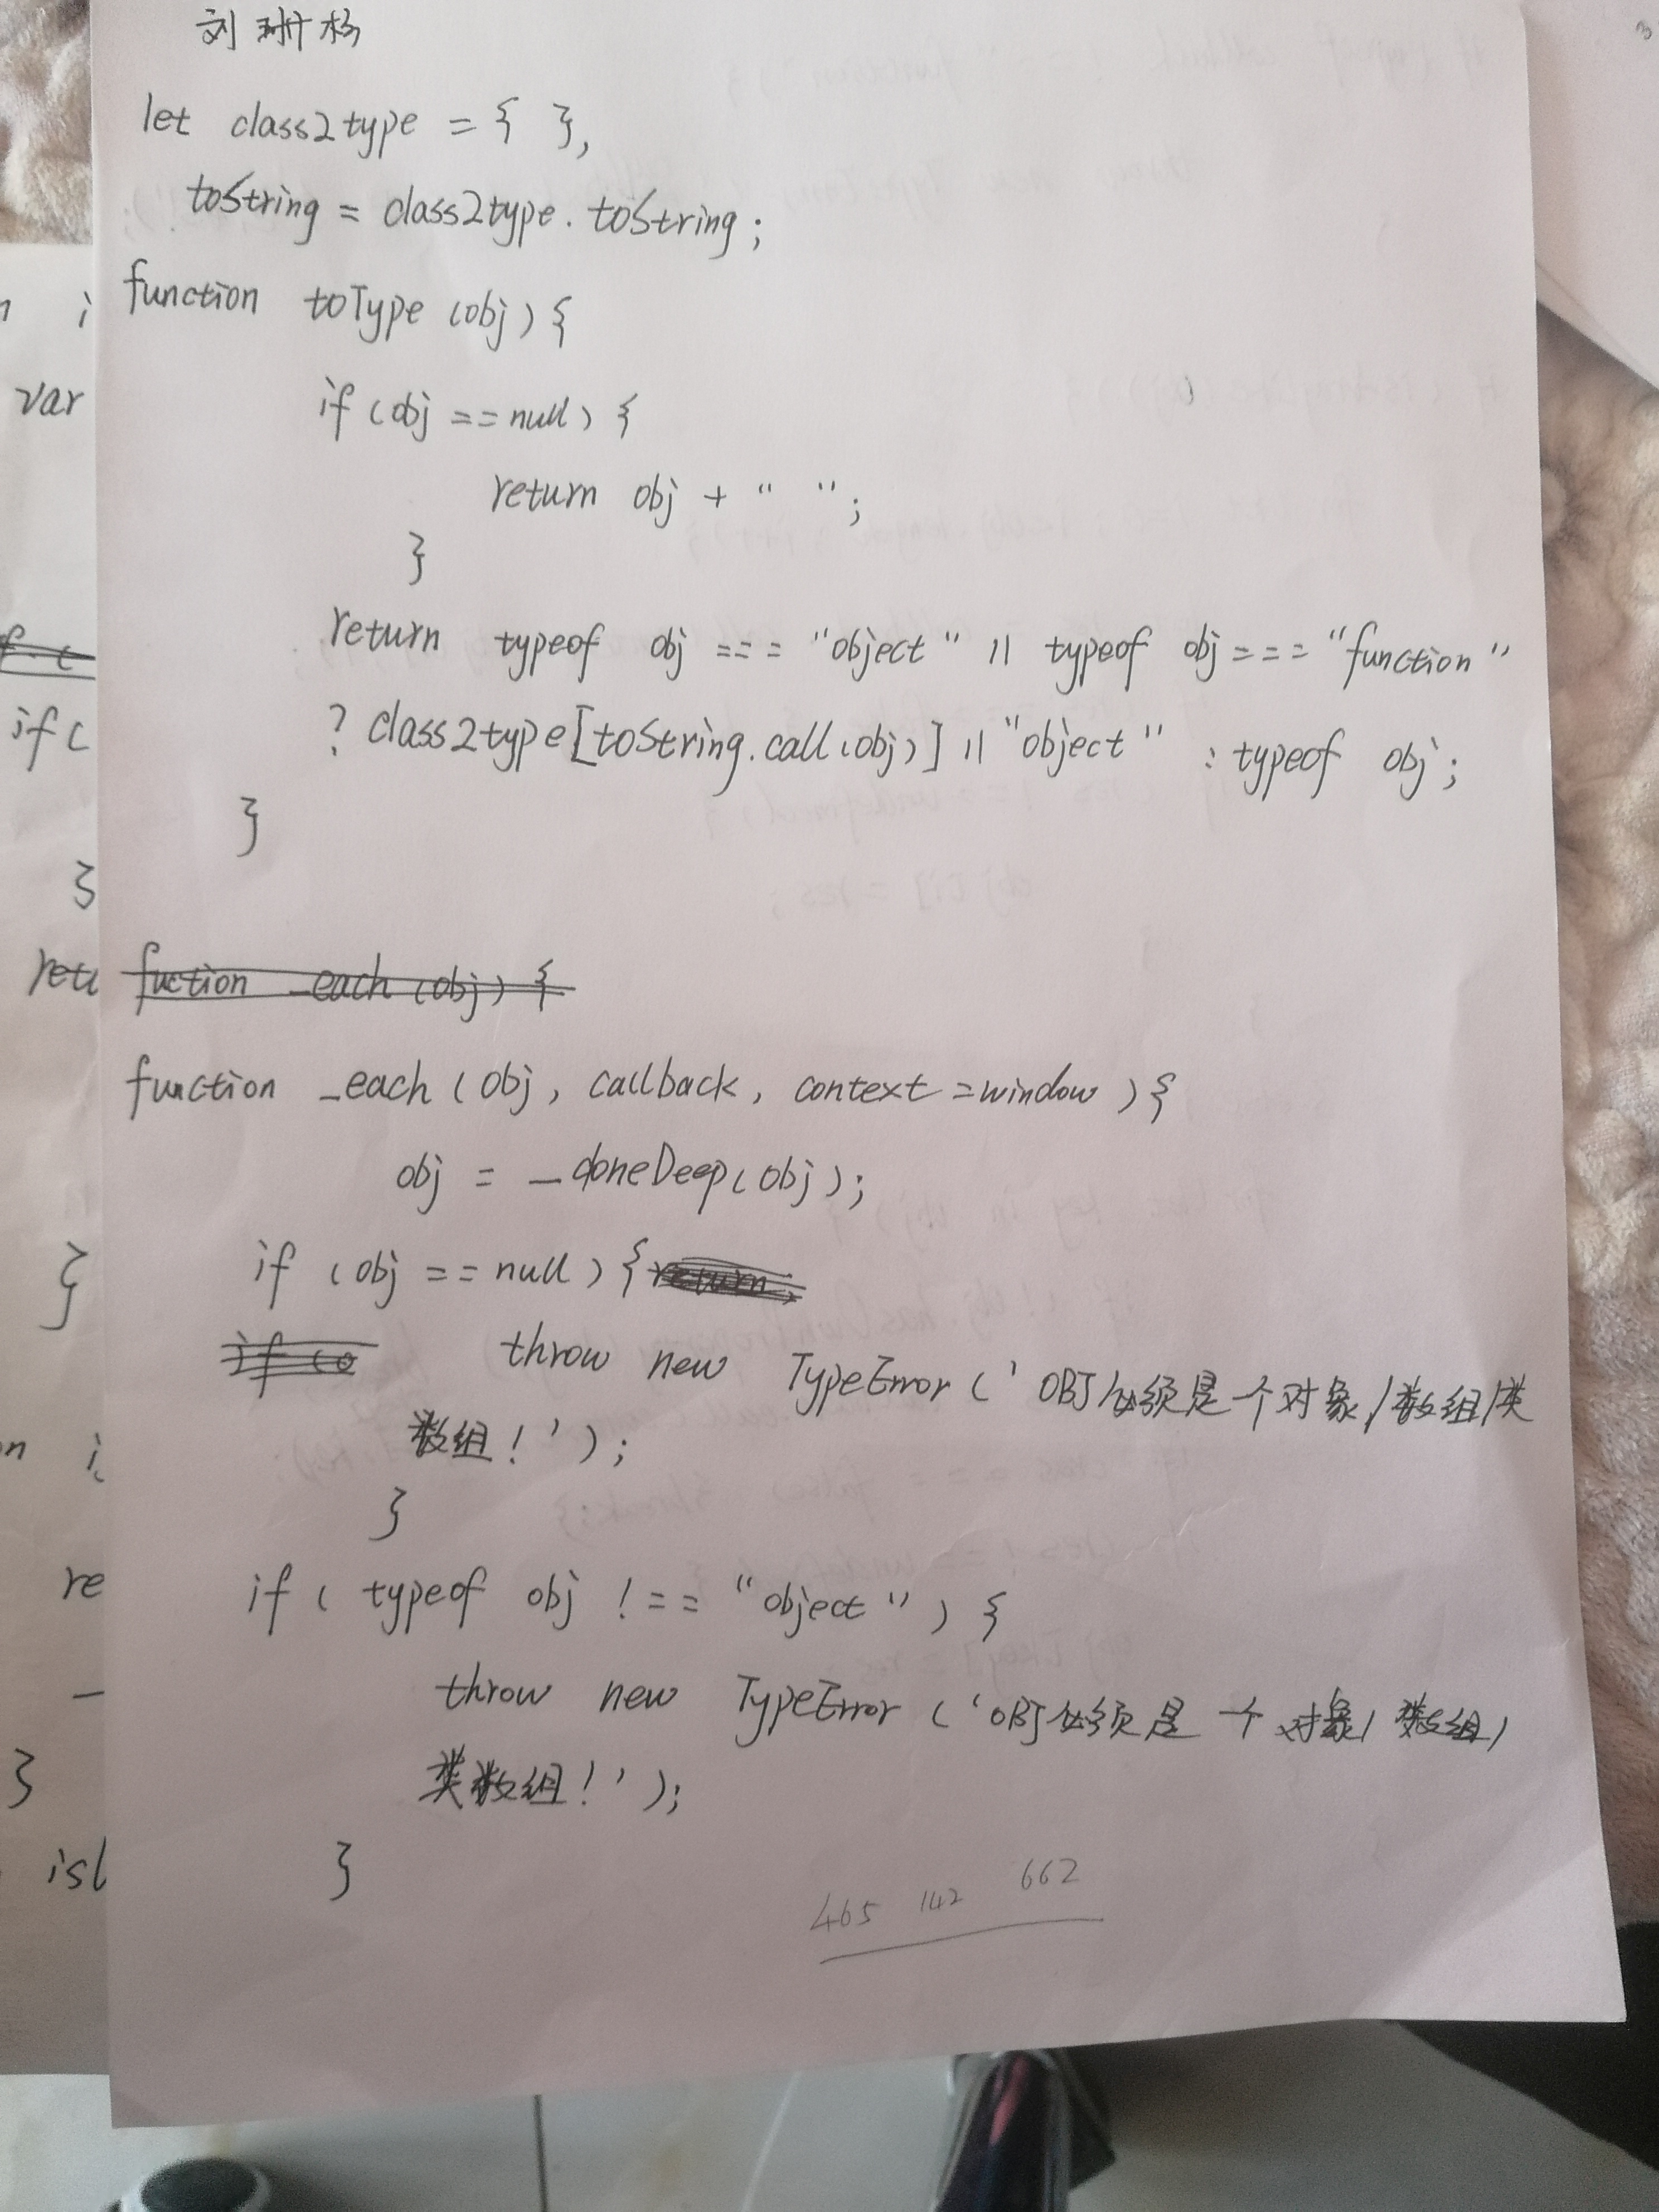 刘 杨
let class2type = { },
toString = class2type. toString ;
function toType (obj) {
if (obj == null) {
return obj + " ";
}
return typeof obj === "object" || typeof obj === "function"
? class2type[toString.call(obj)] || "object" : typeof obj ;
}
fuction _each (obj) {
function _each ( obj, callback, context = window ) {
obj = _doneDeep(obj);
if (obj == null) { return
if (o throw new TypeError (' OBJ必须是个对象/数组/类
数组! ');
}
if ( typeof obj !== "object" ) {
throw new TypeError ('OBJ必须是 个 对象/ 数组/
类数组! ');
}
465 142 662
n i
var
if (
}
retu
}
n i
re
}
isl